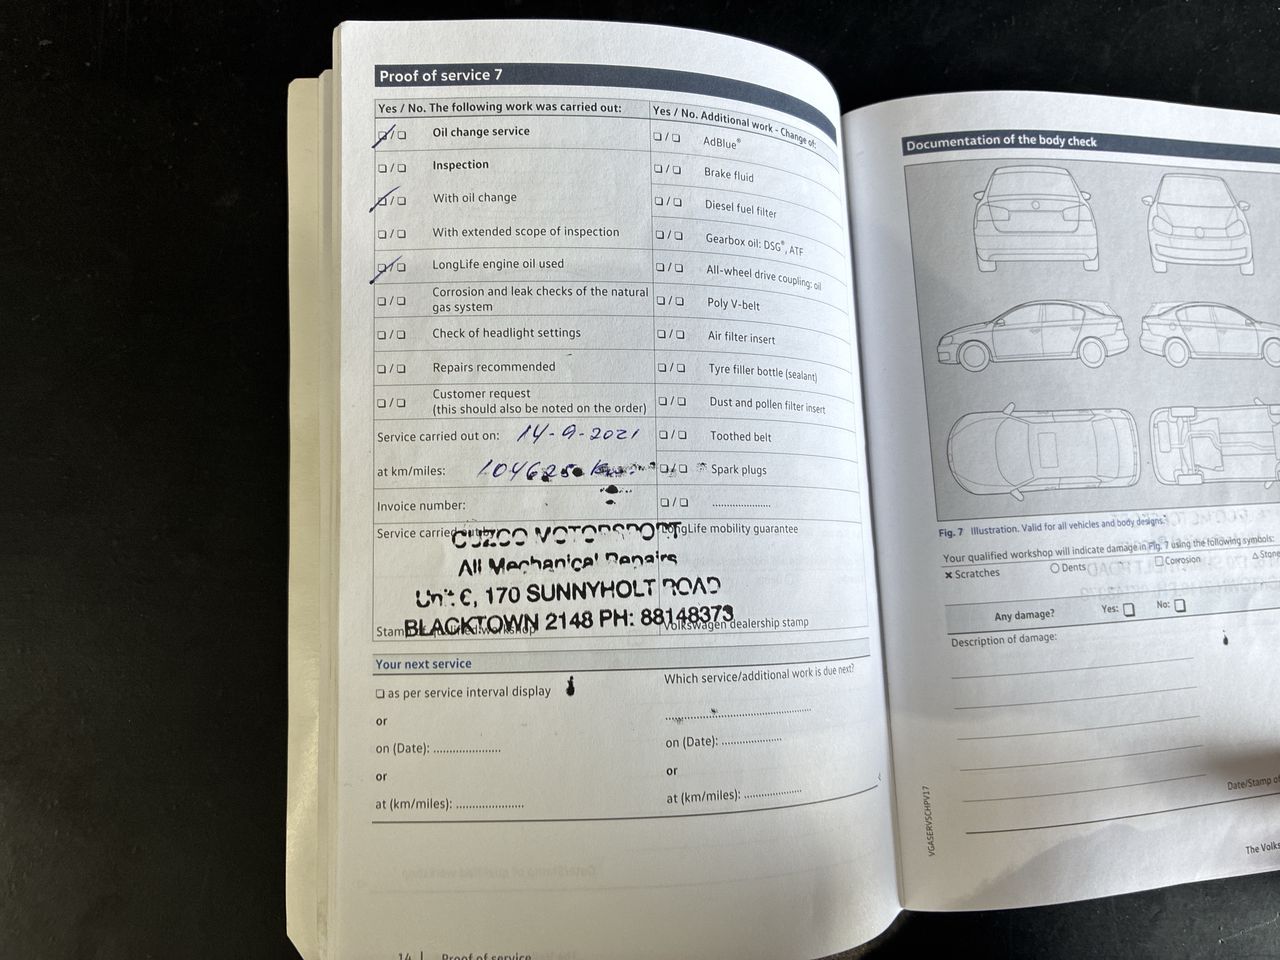 Proof of service 7
Yes / No. The following work was carried out:
❏/❏ Oil change service
❏/❏ Inspection
❏/❏ With oil change
❏/❏ With extended scope of inspection
❏/❏ LongLife engine oil used
❏/❏ Corrosion and leak checks of the natural
gas system
❏/❏ Check of headlight settings
❏/❏ Repairs recommended
❏/❏ Customer request
(this should also be noted on the order)
Service carried out on: 14-9-2021
at km/miles: 104625 Km
Invoice number:
Service carried out by
Yes / No. Additional work - Change of:
❏/❏ AdBlue®
❏/❏ Brake fluid
❏/❏ Diesel fuel filter
❏/❏ Gearbox oil: DSG®, ATF
❏/❏ All-wheel drive coupling: oil
❏/❏ Poly V-belt
❏/❏ Air filter insert
❏/❏ Tyre filler bottle (sealant)
❏/❏ Dust and pollen filter insert
❏/❏ Toothed belt
❏/❏ Spark plugs
❏/❏ .....................
LongLife mobility guarantee
MOTORSPORT
All Mechanical Repairs
170 SUNNYHOLT ROAD
BLACKTOWN 2148 PH: 88148373
Stamp of qualified workshop
Volkswagen dealership stamp
Your next service
❏ as per service interval display
or
on (Date): .....................
or
at (km/miles): .....................
Which service/additional work is due next?
on (Date): ...................
or
at (km/miles): ..................
14 | Proof of service
Documentation of the body check
Fig. 7 Illustration. Valid for all vehicles and body designs.
Your qualified workshop will indicate damage in Fig. 7 using the following symbols:
× Scratches ○ Dents ❏ Corrosion △ Stone
Any damage? Yes: ❏ No: ❏
Description of damage:
Date/Stamp of
VGASERVSCHPV17
The Volks